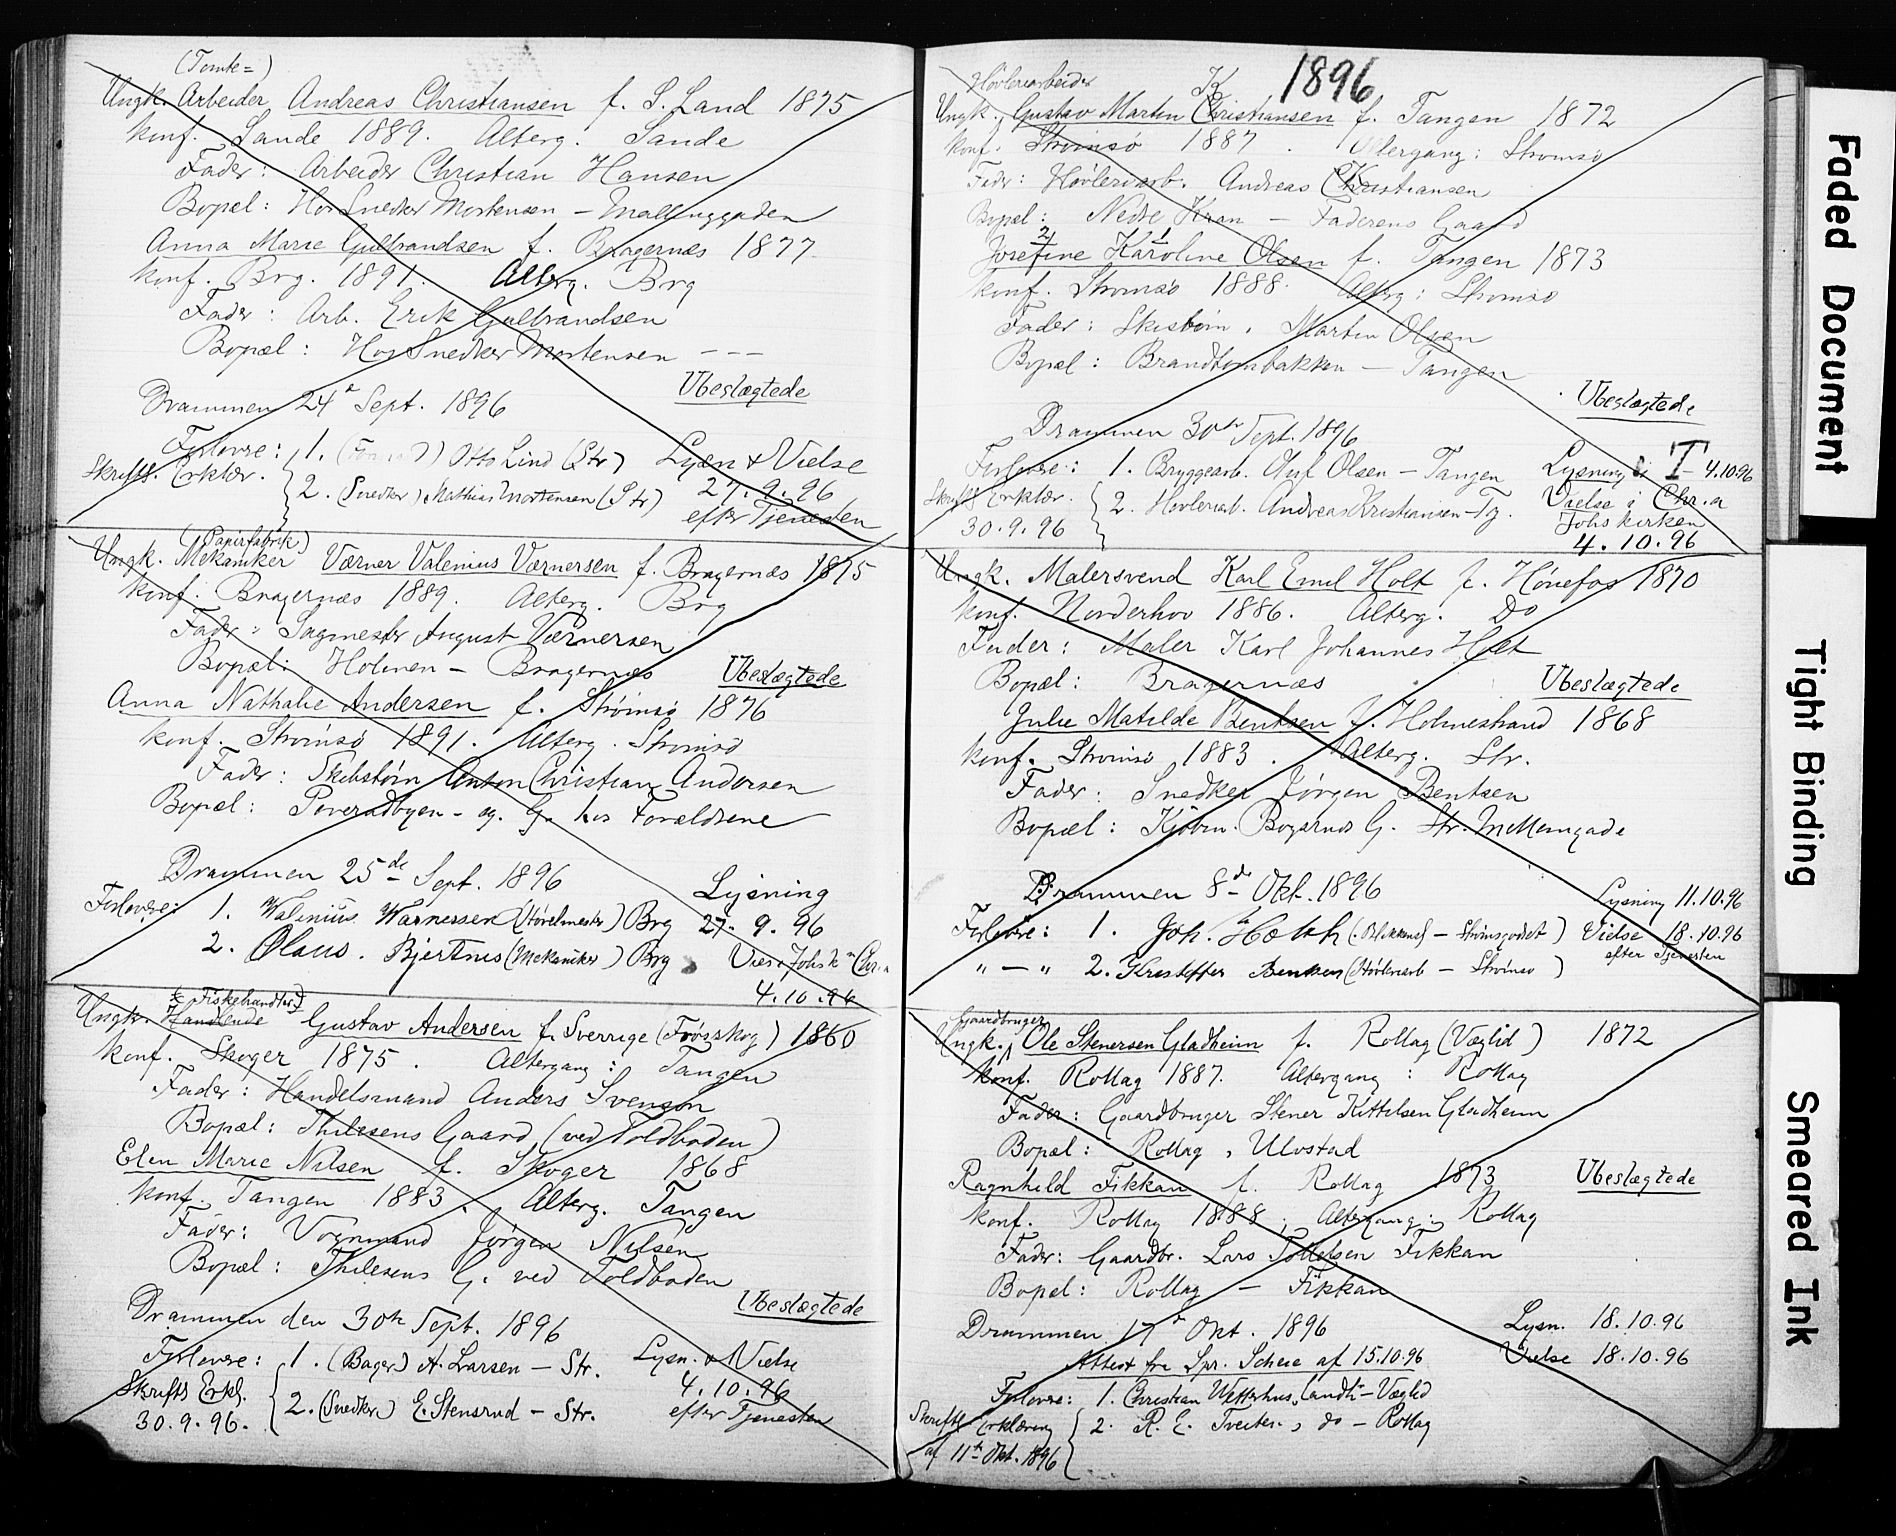 (Tomte=)
Ungk. Arbeider Andreas Christiansen f. S. Land 1875
konf. Sande 1889. Alterg. Sande
Fader: Arbeider Christian Hansen
Bopæl: Hos Snedker Mortensen – Mallinggaden
Anna Marie Gulbrandsen f. Bragernæs 1877
konf. Brg. 1891. Alterg. Brg
Fader: Arb. Erik Gulbrandsen
Bopæl: Hos Snedker Mortensen – – –
Ubeslægtede
Drammen 24 Sept. 1896
Forlovere: 1. Otto Lind (Str) Lysn & Vielse
Skriftl. Erklær. 2. (Snedker) Mathias Mortensen (Str) 27.9.96
efter Tjenesten
(Papirfabrik)
Ungk. Mekaniker Værner Valenius Værnersen f. Bragernæs 1875
konf. Bragernæs 1889. Alterg. Brg
Fader: Sagmester August Værnersen
Bopæl: Holmen – Bragernæs Ubeslægtede
Anna Nathalie Andersen f. Strømsø 1876
konf. Strømsø 1891. Alterg. Strømsø
Fader: Skibstøm Anton Christian Andersen
Bopæl: hos Forældrene
Drammen 25de Sept. 1896 Lysning
Forlovere: 1. Walinius Warnessen (Høvelmester) Brg 27.9.96
2. Olaus Bjertnes (Mekaniker) Brg Vies i Johs k Chr.a
4.10.96
(Fiskehandler)
Ungk. Handlende Gustav Andersen f. Sverrige (Frösskog) 1860
konf. Skoger 1875. Altergang: Tangen
Fader: Handelsmand Anders Svenson
Bopæl: Thilesens Gaard (ved Toldboden)
Elen Marie Nilsen f. Skoger 1868
konf. Tangen 1883. Alterg. Tangen
Fader: Vognmand Jørgen Nilsen
Bopæl: Thilesens G. ved Toldboden
Ubeslægtede
Drammen den 30th Sept. 1896
Forlovere: 1. (Bager) A. Larsen – Str. Lysn. & Vielse
Skriftl Erkl. 2. (Snedker) E. Stensrud – Str. 4.10.96
30.9.96. efter Tjenesten
1896
Høvleriarbeider K
Ungk. Gustav Martin Christiansen f. Tangen 1872
konf. Strømsø 1887. Altergang: Strømsø
Fader: Høvleriarb. Andreas Christiansen
Bopæl: Nedre Kran – Faderens Gaard
2 1
Josefine Karoline Olsen f. Tangen 1873
konf. Strømsø 1888. Alterg: Strømsø
Fader: Skibstøm. Martin Olsen
Bopæl: Brandtombakken – Tangen
Ubeslægtede
Drammen 30th Sept. 1896
Forlovere: 1. Bryggearb. Oluf Olsen – Tangen Lysning i T 4.10.96
Skriftl Erklær. 2. Høvleriarb. Andreas Kristiansen – Tg. Vielse i Chr.a
30.9.96 Johs kirken
4.10.96
Ungk. Malersvend Karl Emil Holt f. Hønefos 1870
konf. Norderhov 1886. Alterg. Do
Fader: Maler Karl Johannes Holt
Bopæl: Bragernæs Ubeslægtede
Julie Matilde Bentsen f. Holmestrand 1868
konf. Strømsø 1883. Alterg. Str.
Fader: Snedker Jørgen Bentsen
Bopæl: Kjøbm. G. Str.
Drammen 8de Okt. 1896
Lysning 11.10.96
Forlovere: 1. Joh. Vielse 18.10.96
efter Tjenesten
" – " 2. Kristoffer Bentsen (Høvleriarb – Strømsø)
Gaardbruger
Ungk. Ole Stenersen Gladheim f. Rollag (Væglid) 1872
konf. Rollag 1887. Altergang: Rollag
Fader: Gaardbruger Stener Kittelsen Gladheim
Bopæl: Rollag, Ulvstad
Ragnhild Fikkan f. Rollag 1873 Ubeslægtede
konf. Rollag 1888. Altergang: Rollag
Fader: Gaardbr. Lars Tollefsen Fikkan
Bopæl: Rollag – Fikkan
Drammen 17 Okt. 1896 Lysn. 18.10.96
Attest fra Spr. Scheie af 15.10.96 Vielse 18.10.96
Forlovere: 1. Christian Landh – Væglid
Skriftl Erklæring 2. R. E. Tveiten, do – Rollag
af 11te Okt. 1896
Faded Document
Tight Binding
Smeared Ink